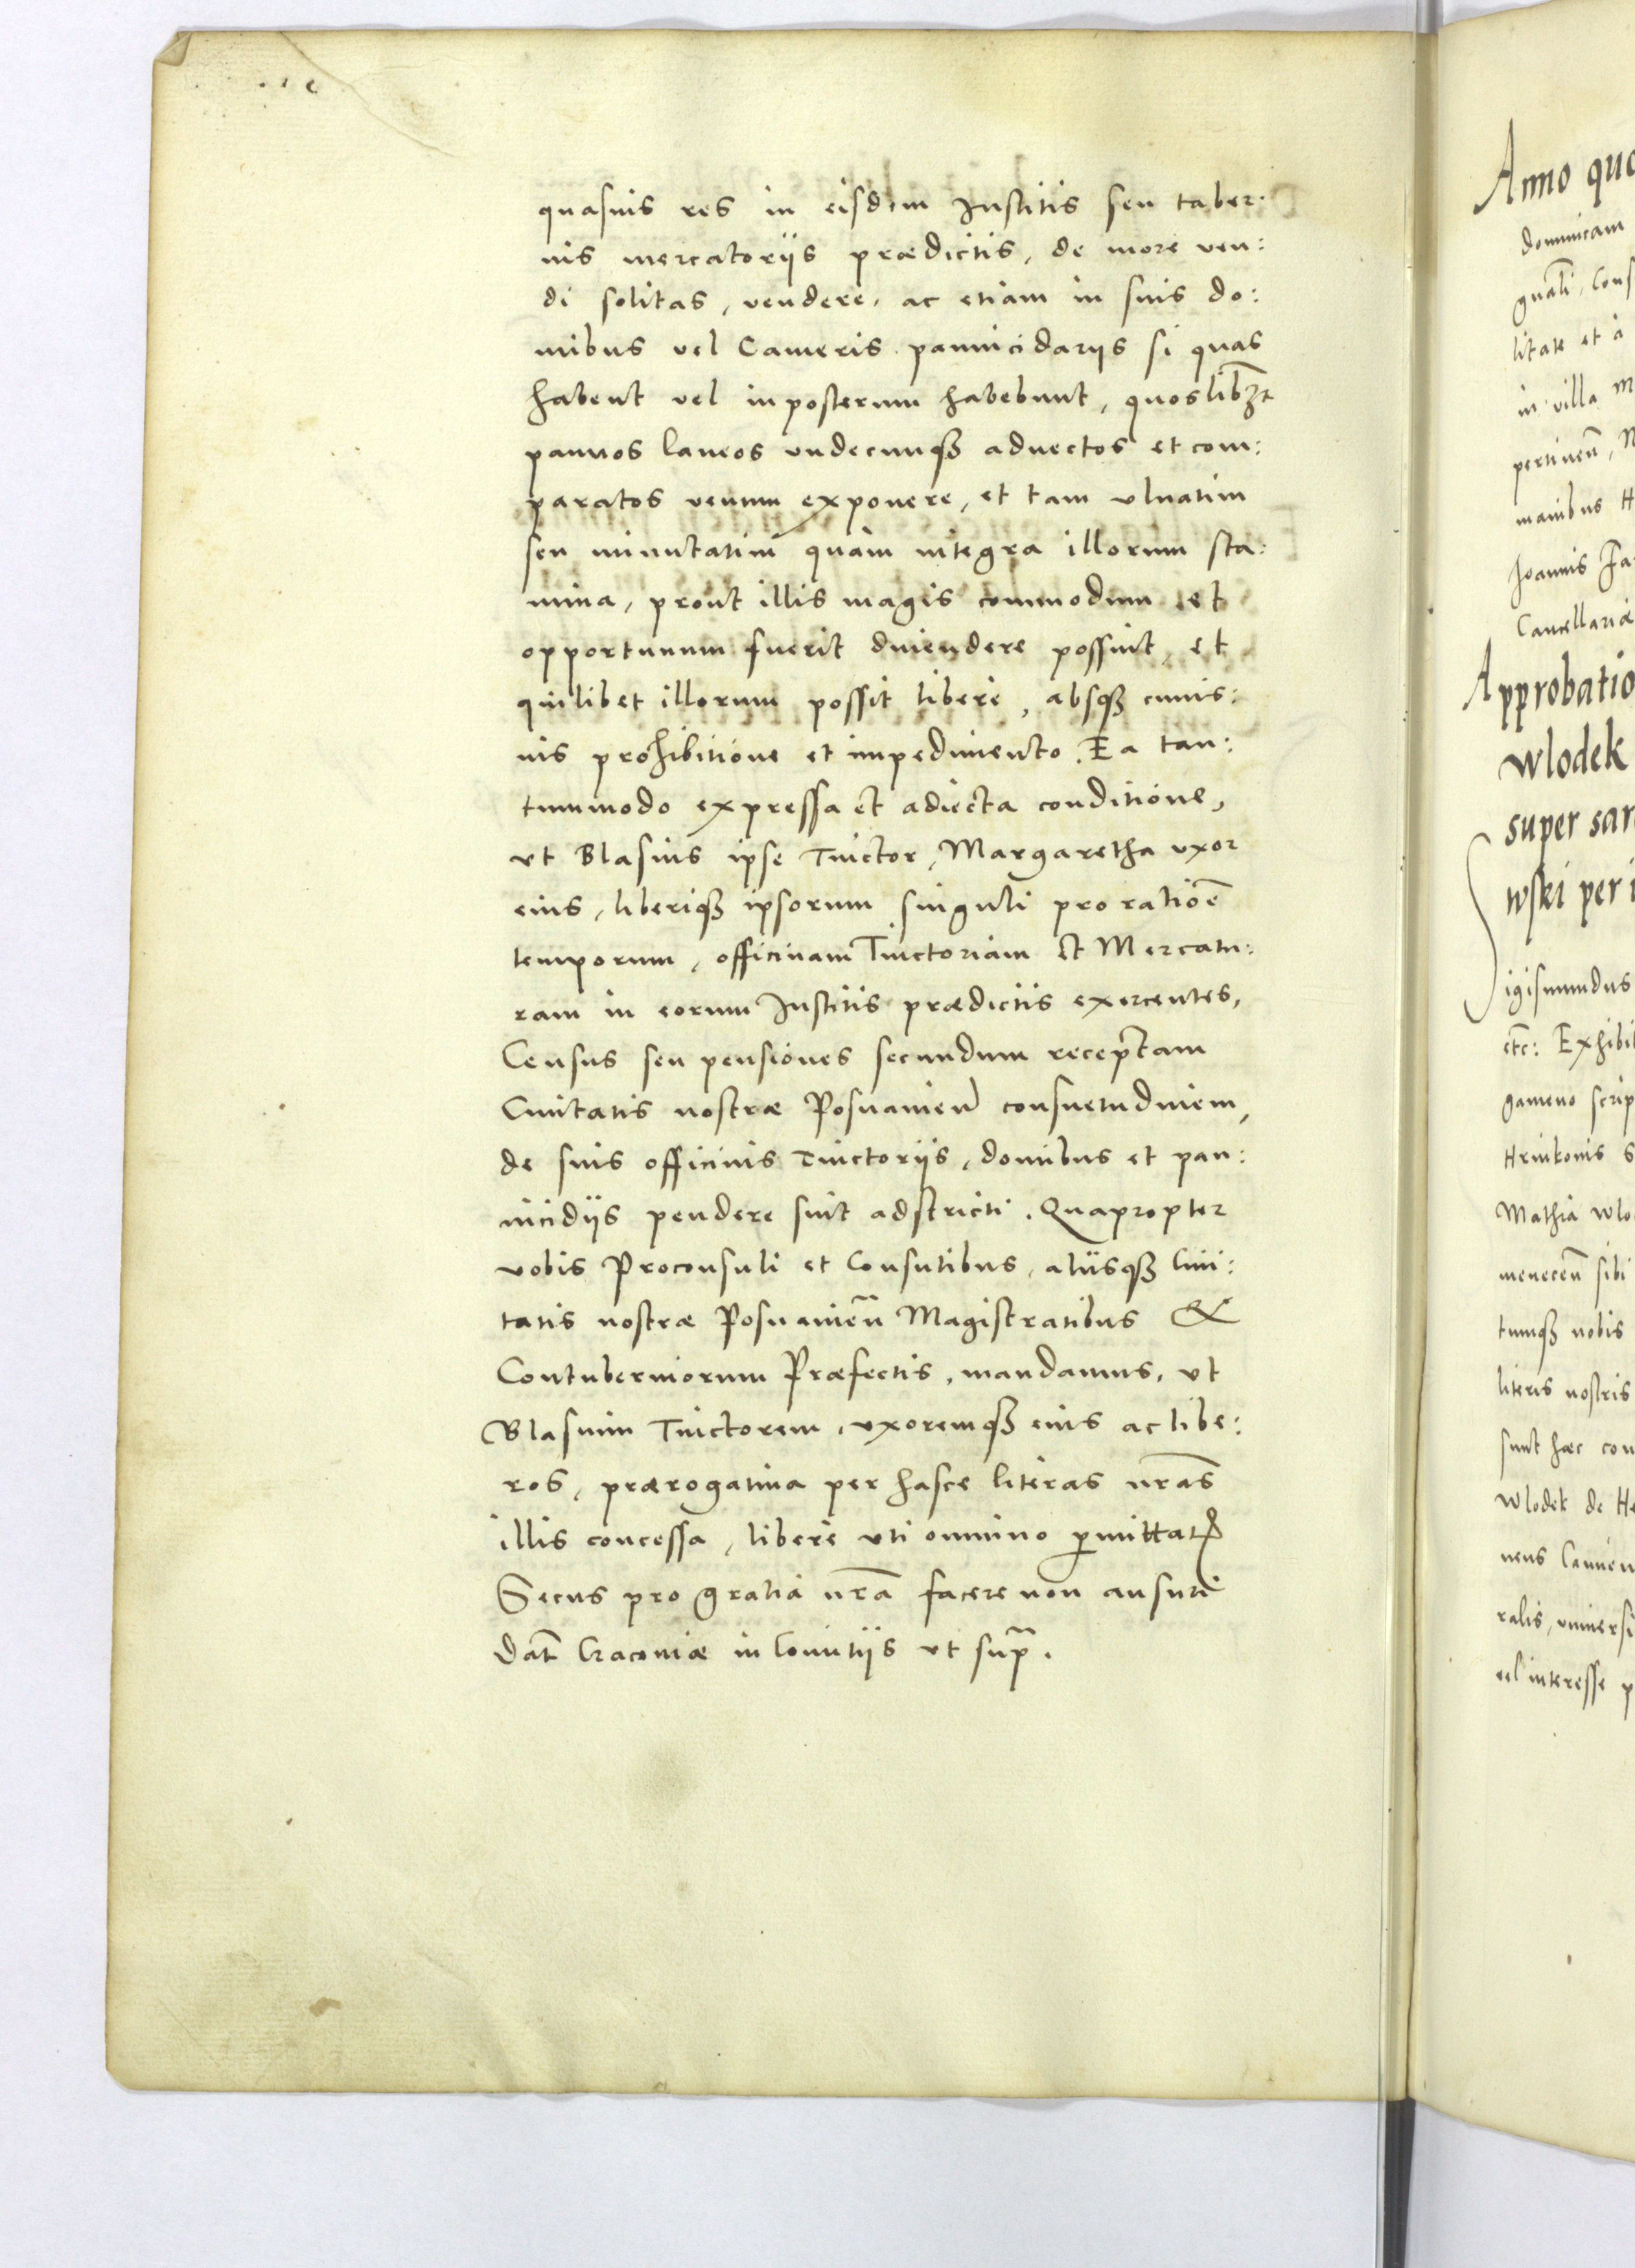 quasuis res in eisdem Institis seu taber:
nis mercatorijs prædictis, de more ven:
di solitas, vendere, ac etiam in suis do:
mibus vel Cameris pannicidarijs si quas
habent vel inposterum habebunt, quoslibꝫt
pannos laneos vndecunqꝫ aduectos et com:
paratos venum exponere, et tam vlnatim
seu minutatim quàm integra illorum sta:
mina, prout illis magis commodum et
opportunum fuerit diuendere possint, et
quilibet illorum possit liberè, absqꝫ cuius:
uis prohibitione et impedimento. Ea tan:
tummodo expressa et adiecta conditione,
vt Blasius ipse Tinctor, Margaretha vxor
eius, liberiqꝫ ipsorum singuli pro ratiōe
temporum, officinam Tinctoriam et Mercatu:
ram in eorum Institis prædictis exercentes,
Census seu pensiones secundum receptam
Ciuitatis nostræ Posnanien̄ consuetudinem,
de suis officinis Tinctorijs, domibus et pan:
nicidijs pendere sint adstricti. Quapropter
vobis Proconsuli et Consulibus, alijsqꝫ Ciui:
tatis nostræ Posnanien̄ Magistratibus &
Contuberniorum Præfectis, mandamus, vt
Blasium Tinctorem, vxoremqꝫ eius ac libe:
ros, prærogatiua per hasce literas nr̄as
illis concessa, liberè vti omnino ꝑmittatꝭ
Secus pro gratia nr̄a facere non ausuri
Dat̄ Cracouiæ in Comitijs vt supᷓ.
Anno quo
dominicam
litate et a
in villa
manibus
Joannis
Cancellariæ
Approbatio
Wlodek
super
wski per
Sigismundus
etc: Exhibi
gameno scrip
Mathia Wlo
tumqꝫ nobis
literis nostris
sunt hæc con
Wlodek de
ralis, vniuersi
vel interesse p